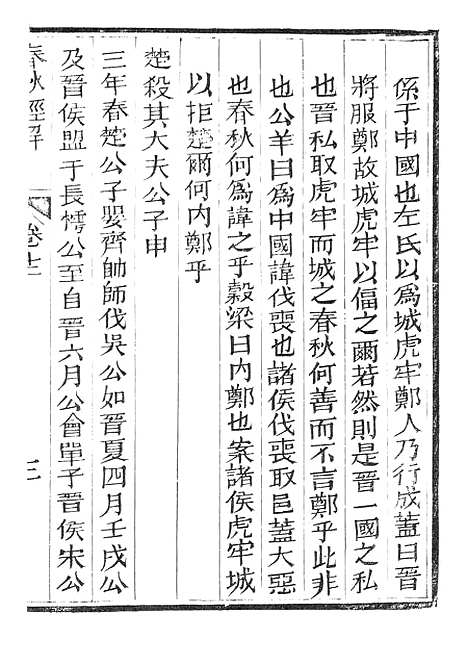 係于中國也左氏以爲城虎牢鄭人乃行成蓋曰晉
將服鄭故城虎牢以偪之爾若然則是晉一國之私
也晉私取虎牢而城之春秋何善而不言鄭乎此非
也公羊曰爲中國諱伐喪也諸侯伐喪取邑蓋大惡
也春秋何爲諱之乎穀梁曰内鄭也案諸侯虎牢城
以拒楚爾何内鄭乎
楚殺其大夫公子申
三年春楚公子嬰齊帥師伐吳公如晉夏四月壬戌公
及晉侯盟于長樗公至自晉六月公會單子晉侯宋公
春秋經解
卷十二
三